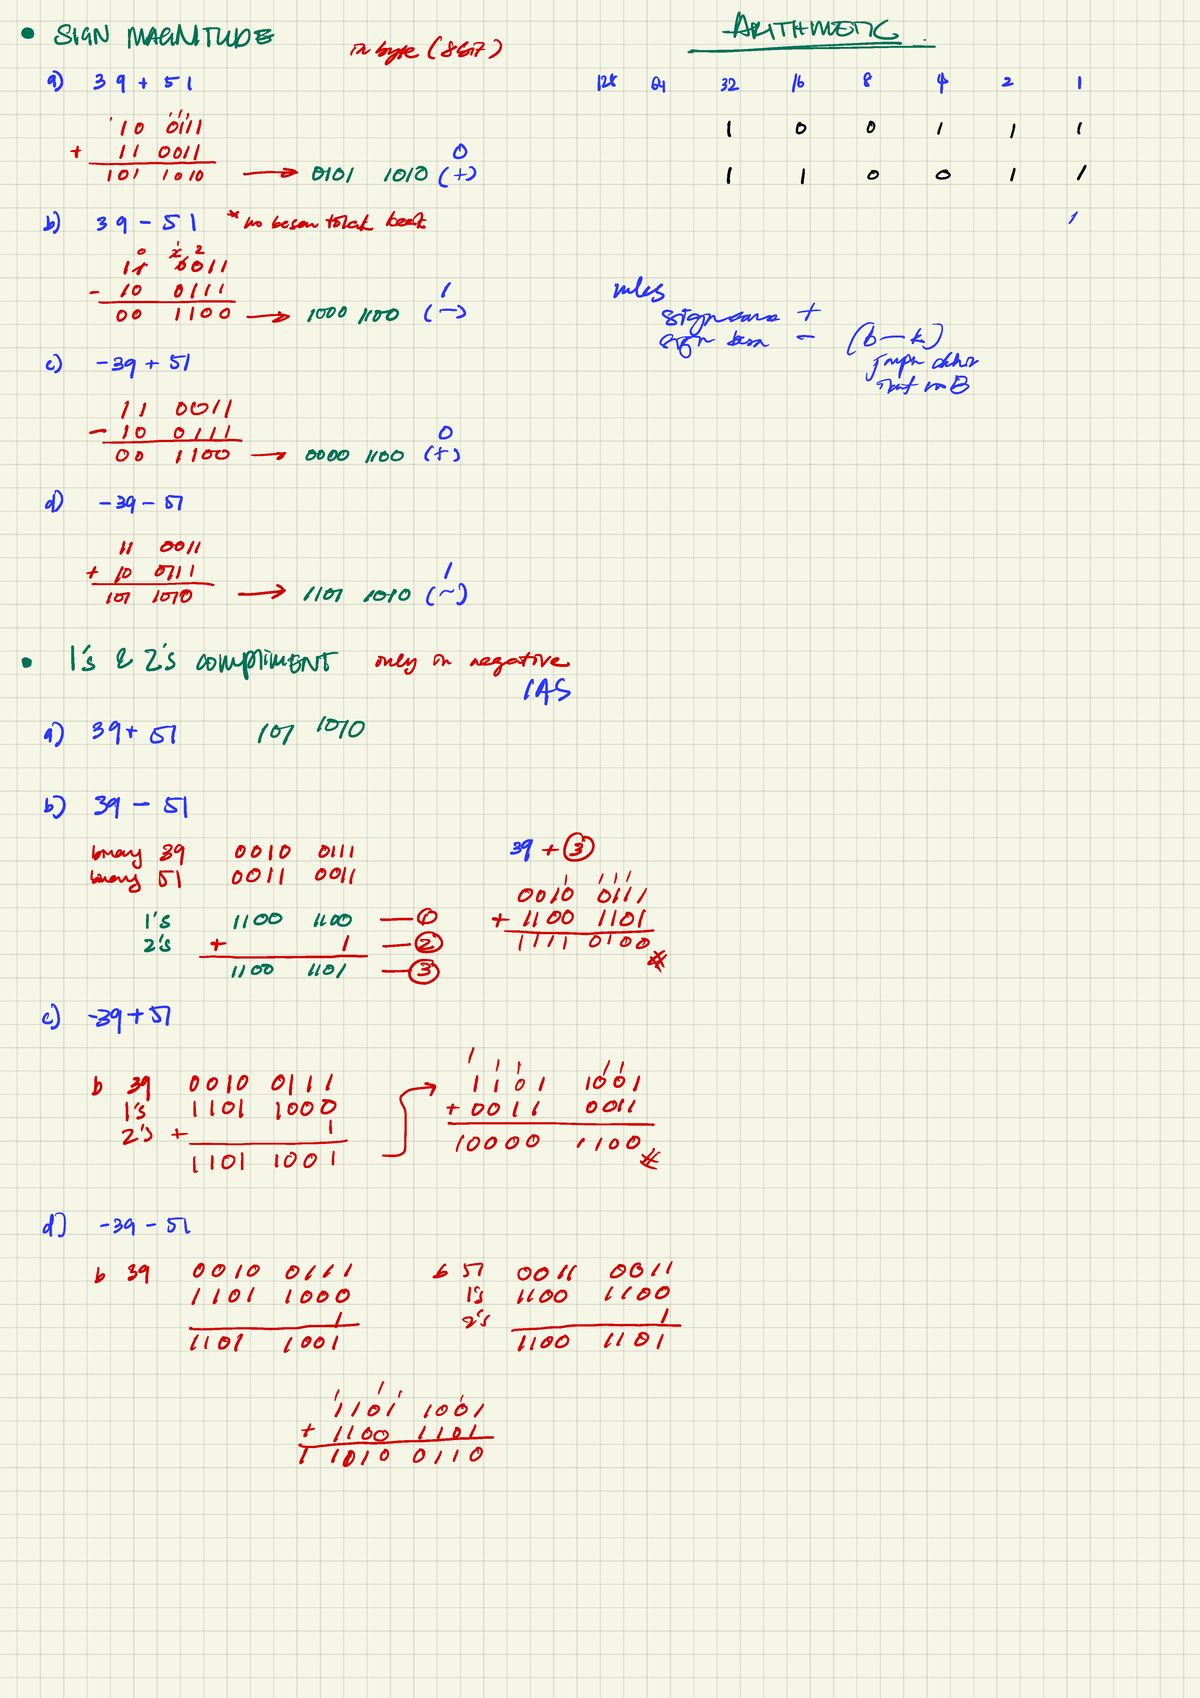 • SIGN MAGNITUDE
in byte (8bit)
ARITHMETIC
a) 39 + 51
128 64 32 16 8 4 2 1
1 1 1 1
10 0111
+ 11 0011
101 1010 → 0101 1010 (+)
0
1 0 0 1 1 1
1 1 0 0 1 1
1
b) 39 - 51 * no besar tolak
0 2 2
11 0011
- 10 0111
00 1100 → 1000 1100 (-)
1
rules
sign sama +
sign beza - (b - k)
c) -39 + 51
11 0011
- 10 0111
00 1100 → 0000 1100 (+)
0
d) -39 - 51
11 0011
+ 10 0111
101 1010 → 1101 1010 (-)
1
• 1's & 2's COMPLIMENT only on negative
IAS
a) 39 + 51 101 1010
b) 39 - 51
binary 39 0010 0111
binary 51 0011 0011
1's 1100 1100 — ①
2's + 1 — ②
1100 1101 — ③
39 + ③
1 1 1 1
0010 0111
+ 1100 1101
1111 0100
c) -39 + 51
b 39 0010 0111
1's 1101 1000
2's + 1
1101 1001
1 1 1 1 1
1101 1001
+ 0011 0011
10000 1100
d) -39 - 51
b 39 0010 0111
1101 1000
1
1101 1001
b 51 0011 0011
1's 1100 1100
2's 1
1100 1101
1 1 1 1
1101 1001
+ 1100 1101
1 1010 0110